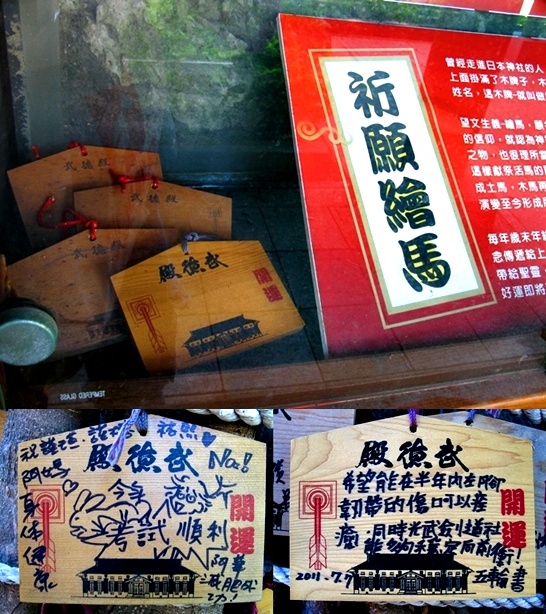 武德殿
武德殿
武德殿
武德殿
開運
祈願繪馬
曾經走進日本神社的人
上面掛滿了木牌子，木
姓名，這木牌-就叫
望文生義-繪馬，
的信仰，就認為神
之物，也很理所當
這樣獻祭活馬的
成土馬，木馬再
演變至今形成
每年歲末年
念傳遞給上
帶給聖靈
好運即將
TEMPERED GLASS
武德殿
開運
No.1
阿媽
身体健康
今年
考試順利
阿華
減肥成功!
武德殿
開運
希望能在半年內左腳
韌帶的傷口可以痊
癒，同時光武劍道社
能夠穩定向前衝!
2011.7.7
書